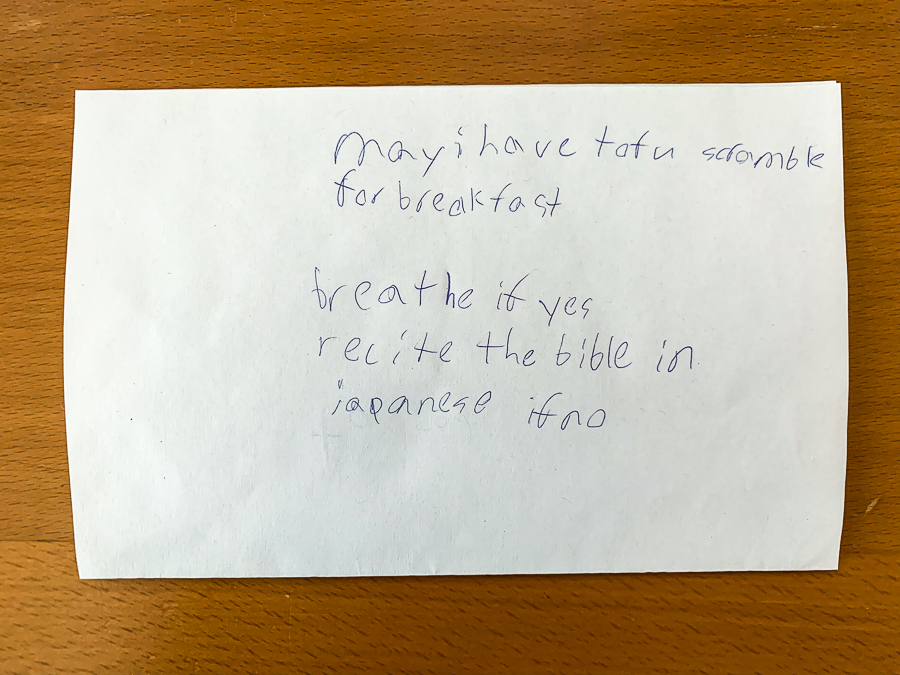 may i have tofu scramble
for breakfast
breathe if yes
recite the bible in
japanese if no